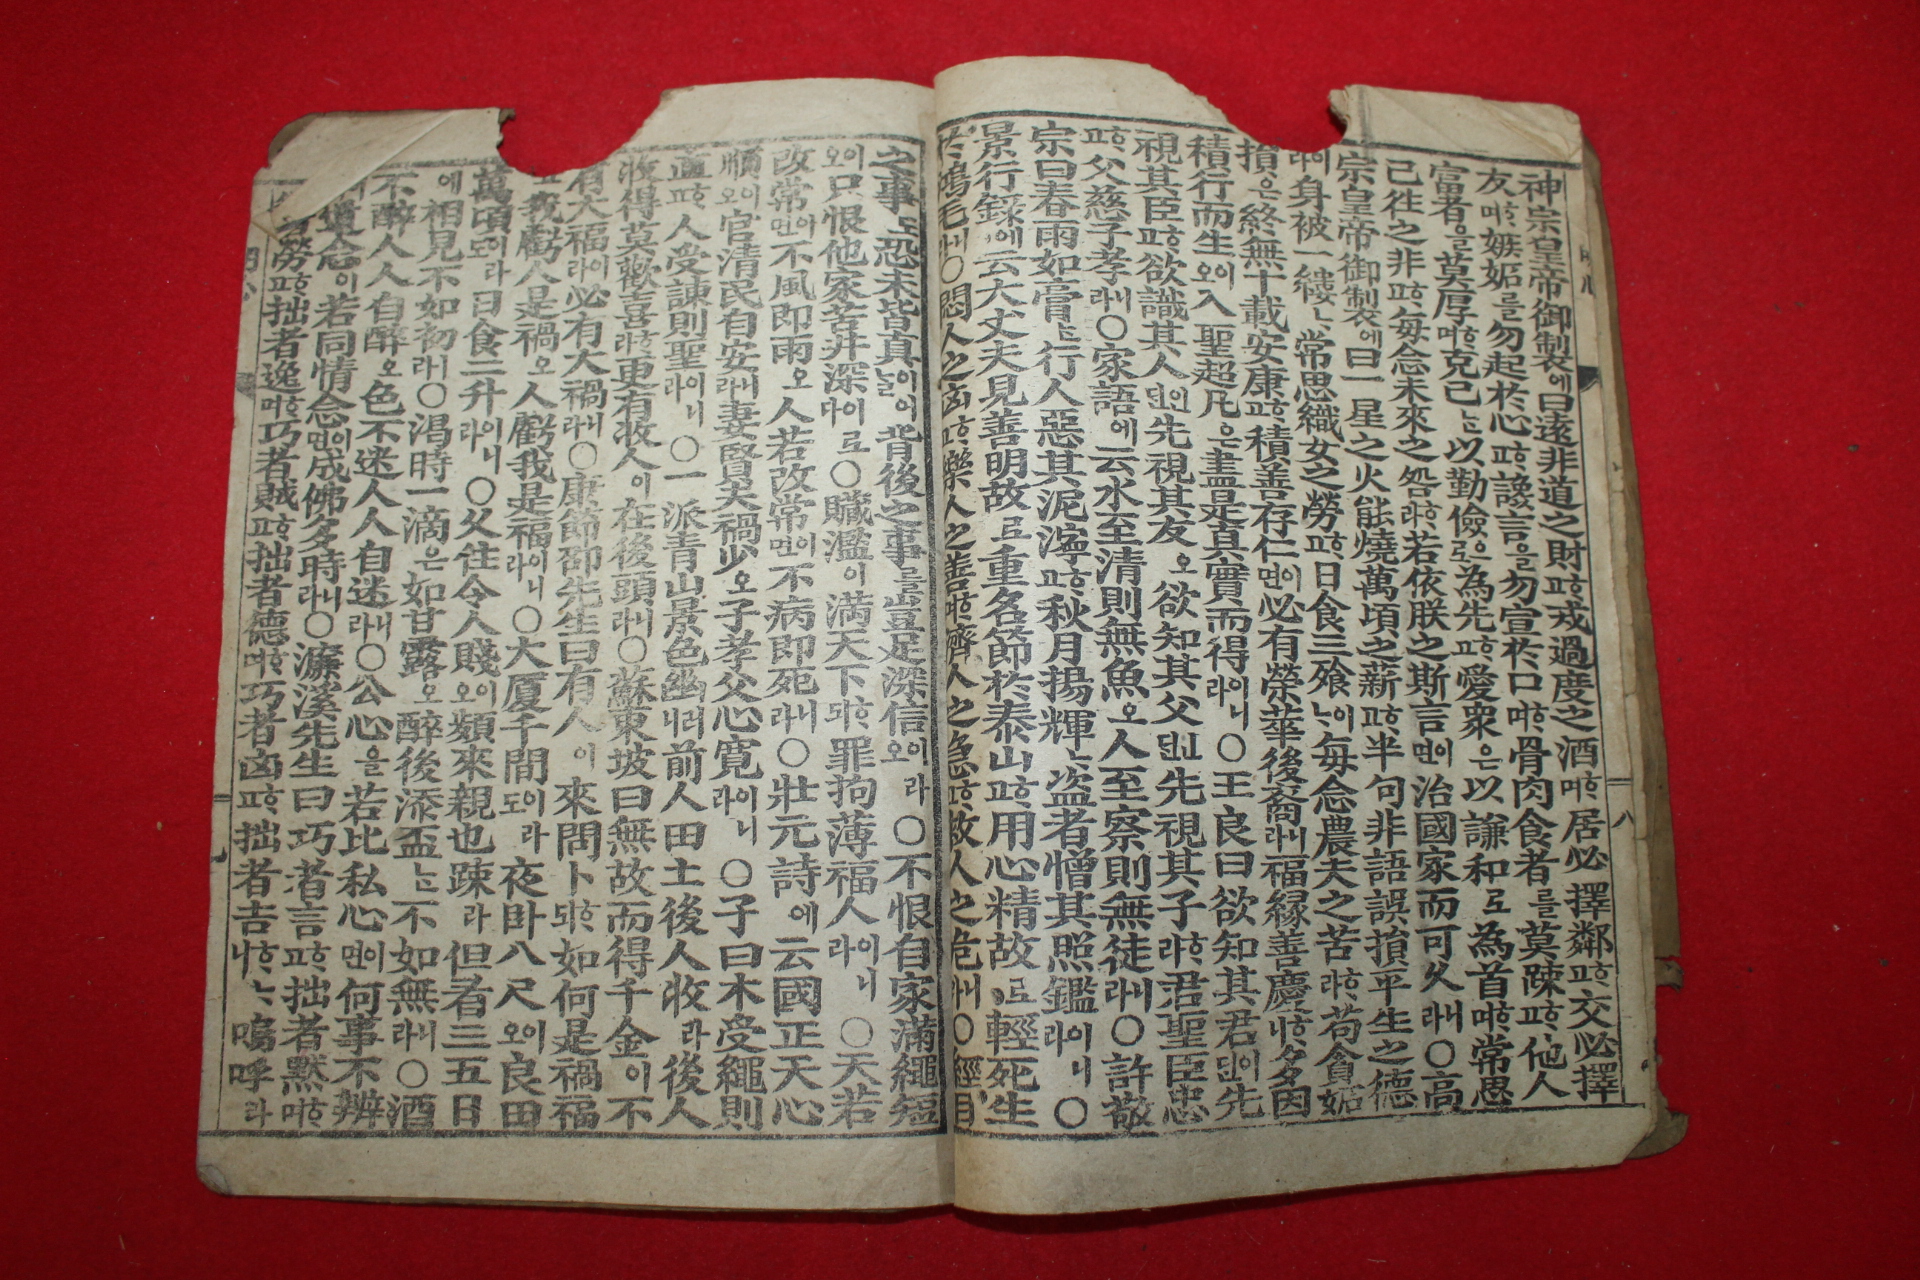 神宗皇帝御製에曰遠非道之財고ᄒᆞ며戒過度之酒며ᄒᆞ居必擇鄰고ᄒᆞ交必擇
友며ᄒᆞ嫉妬를勿起於心고ᄒᆞ讒言을勿宣於口며ᄒᆞ骨肉食者를莫疎고ᄒᆞ他人
富者를莫厚며ᄒᆞ克己는以勤儉으로為先고ᄒᆞ愛衆은以謙和로為首며ᄒᆞ常思
已往之非고ᄒᆞ每念未來之咎라ᄒᆞ若依朕之斯言이면治國家而可久라니○高
宗皇帝御製에曰一星之火能燒萬頃之薪고ᄒᆞ半句非語誤損平生之德
이라身被一縷나常思織女之勞고ᄒᆞ日食三飱이나每念農夫之苦라ᄒᆞ苟貪妬
損은終無十載安康고ᄒᆞ積善存仁이면必有榮華後裔라니福緣善慶多因
積行而生이오入聖超凡은盡是真實而得이니라○王良曰欲知其君인ᄃᆡᆫ先
視其臣고ᄒᆞ欲識其人인ᄃᆡᆫ先視其友오欲知其父ᄃᆡᆫ先視其子라ᄒᆞ君聖臣忠
고ᄒᆞ父慈子孝라니○家語에云水至清則無魚오人至察則無徒라니○許敬
宗曰春雨如膏나行人惡其泥濘고ᄒᆞ秋月揚輝나盗者憎其照鑑이니라○
景行錄에云大丈夫見善明故로重名節於泰山고ᄒᆞ用心精故로輕死生
於鴻毛라니○悶人之凶고ᄒᆞ樂人之善며ᄒᆞ濟人之急고ᄒᆞ救人之危라니○經目
之事도恐未皆真이어늘背後之事를豈足深信이오라○不恨自家滿繩短
이오只恨他家苦井深이로다○贓濫이滿天下되ᄒᆞ罪拘薄福人이니라○天若
改常이면不風即雨오人若改常이면不病即死라니○壯元詩에云國正天心
順이오官清民自安라니妻賢夫禍少오子孝父心寛이니라○子曰木受繩則
直고ᄒᆞ人受諫則聖이니라○一派青山景色幽러니前人田土後人收라後人
收得莫歡喜라ᄒᆞ更有收人이在後頭라니○蘇東坡曰無故而得千金이不
有大福이라必有大禍라니○康節邵先生曰有人이來問卜되ᄒᆞ如何是禍福
고我虧人是禍오人虧我是福이니라○大厦千間이라도夜卧八尺이오良田
萬頃이라도日食二升이니라○久住令人賤이오頻來親也踈라但看三五日
에相見不如初라니○渇時一滴은如甘露오醉後添盃는不如無라니○酒
不醉人人自醉오色不迷人人自迷라니○公心을若比私心이면何事不辨
이道念이若同情念이면成佛多時라니○濂溪先生曰巧者言고ᄒᆞ拙者黙며ᄒᆞ
者勞고ᄒᆞ拙者逸며ᄒᆞ巧者賊고ᄒᆞ拙者德며ᄒᆞ巧者凶고ᄒᆞ拙者吉ᄒᆞ나니嗚呼라
八